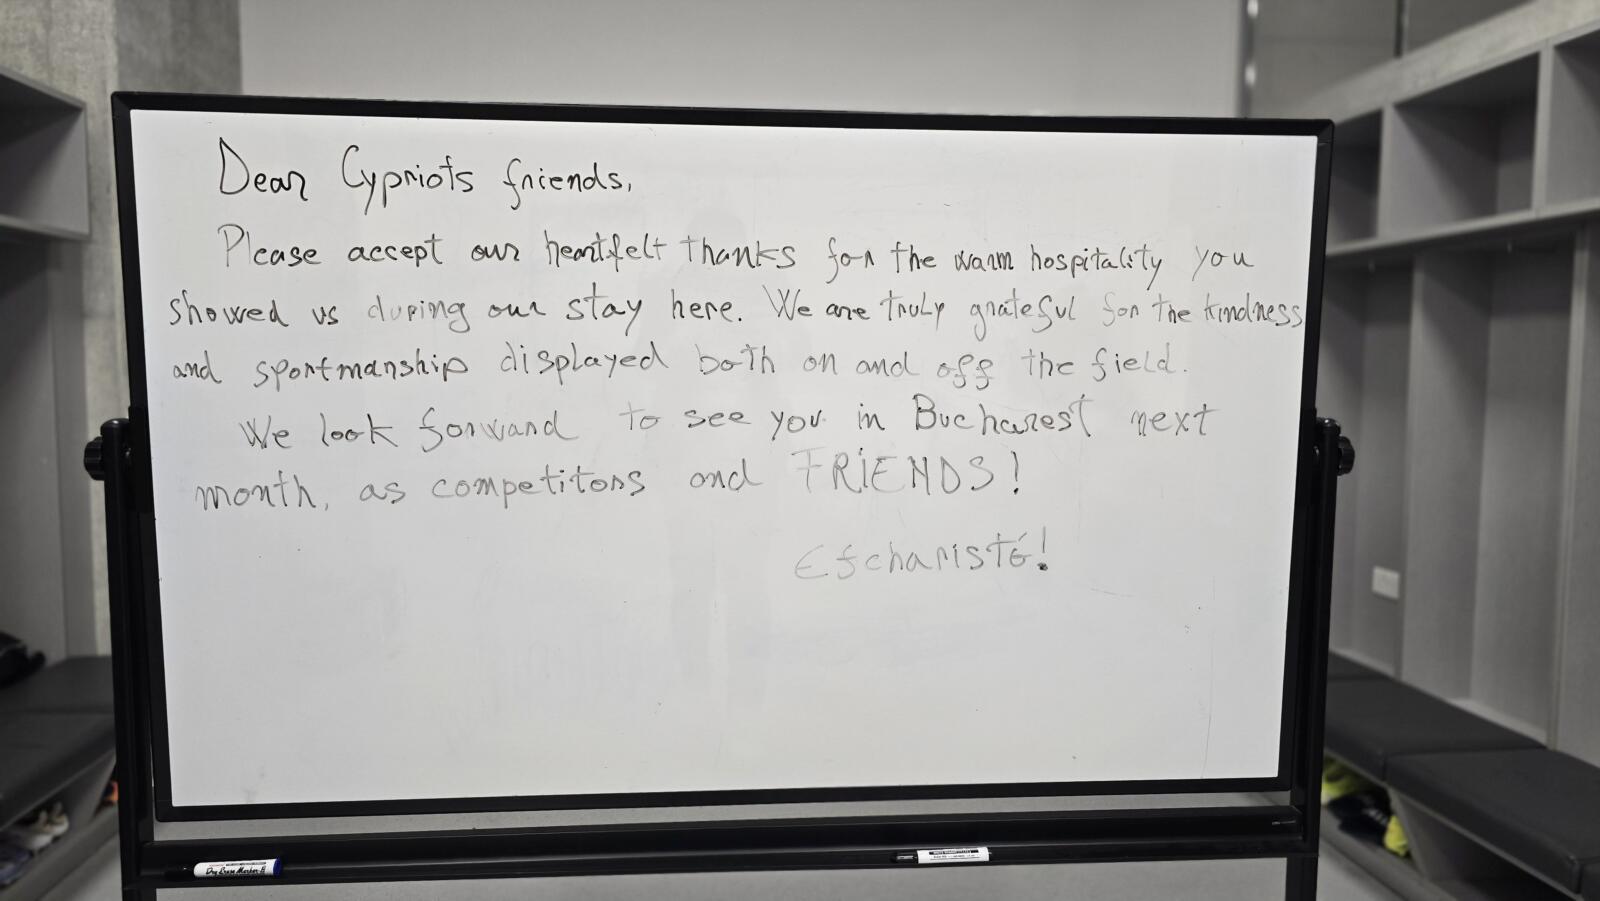 Dear Cypriots friends,
Please accept our heartfelt thanks for the warm hospitality you
showed us during our stay here. We are truly grateful for the kindness
and sportmanship displayed both on and off the field.
We look forward to see you in Bucharest next
month, as competitors and FRIENDS!
Efcharisté!
Dry Erase Marker